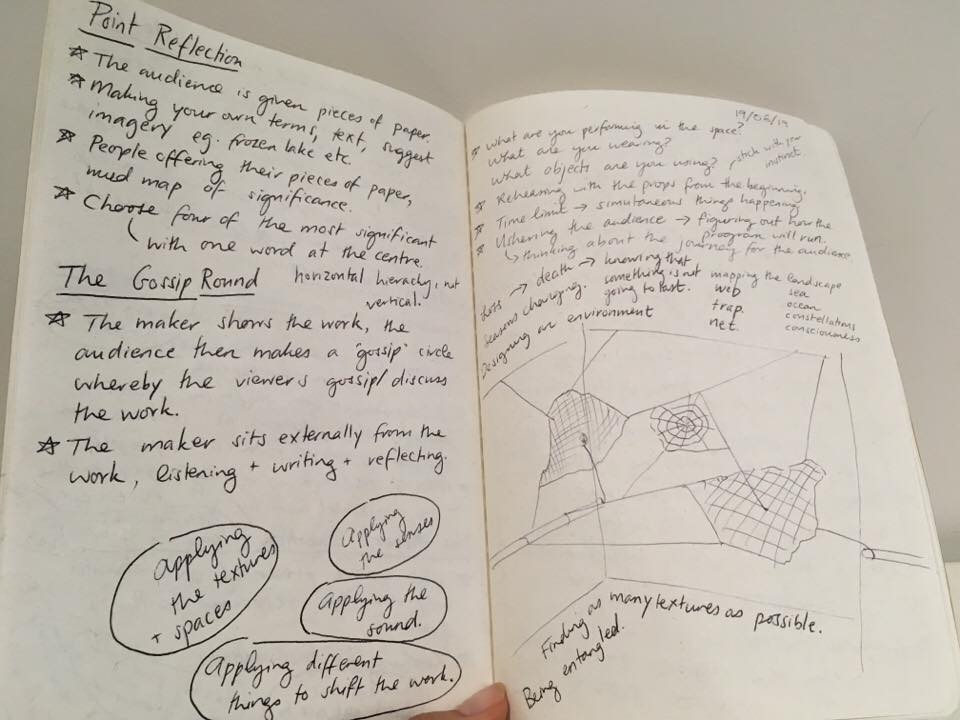 Point Reflection
☆ The audience is given pieces of paper.
☆ Making your own terms, text, suggest
imagery eg. frozen lake etc.
☆ People offering their pieces of paper,
mud map of significance.
☆ Choose four of the most significant
with one word at the centre.
horizontal hierachy, not
vertical.
The Gossip Round
☆ The maker shows the work, the
audience then makes a 'gossip' circle
whereby the viewers gossip/discuss
the work.
☆ The maker sits externally from the
work, listening + writing + reflecting.
Applying
the textures
+ spaces
Applying
the senses
Applying the
sound.
Applying different
things to shift the work.
19/06/19
☆ What are you performing in the space?
What are you wearing?
What objects are you using?
stick with your
instinct.
☆ Rehearsing with the props from the beginning.
☆ Time limit → simutaneous things happening
☆ Ushering the audience → figuring out how the
program will run.
↳ thinking about the journey for the audience
Loss → death → knowing that
something is not
going to last.
seasons changing.
Designing an environment
mapping the landscape
web
trap.
net.
sea
ocean
constellations
consciousness
Finding as many textures as possible.
Being entangled.